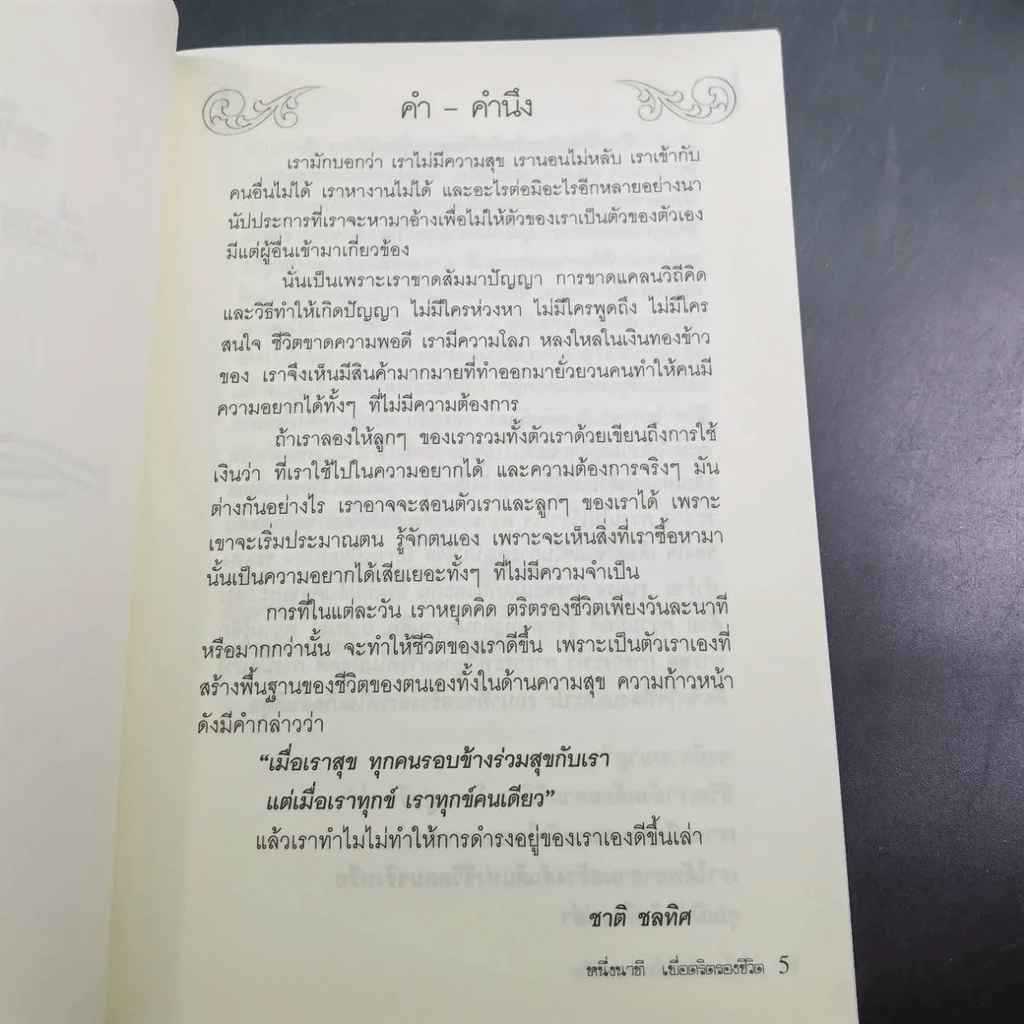 คำ – คำนึง
เรามักบอกว่า เราไม่มีความสุข เรานอนไม่หลับ เราเข้ากับ
คนอื่นไม่ได้ เราหางานไม่ได้ และอะไรต่อมิอะไรอีกหลายอย่างนา
นัปประการที่เราจะหามาอ้างเพื่อไม่ให้ตัวของเราเป็นตัวของตัวเอง
มีแต่ผู้อื่นเข้ามาเกี่ยวข้อง
นั่นเป็นเพราะเราขาดสัมมาปัญญา การขาดแคลนวิถีคิด
และวิธีทำให้เกิดปัญญา ไม่มีใครห่วงหา ไม่มีใครพูดถึง ไม่มีใคร
สนใจ ชีวิตขาดความพอดี เรามีความโลภ หลงใหลในเงินทองข้าว
ของ เราจึงเห็นมีสินค้ามากมายที่ทำออกมายั่วยวนคนทำให้คนมี
ความอยากได้ทั้งๆ ที่ไม่มีความต้องการ
ถ้าเราลองให้ลูกๆ ของเรารวมทั้งตัวเราด้วยเขียนถึงการใช้
เงินว่า ที่เราใช้ไปในความอยากได้ และความต้องการจริงๆ มัน
ต่างกันอย่างไร เราอาจจะสอนตัวเราและลูกๆ ของเราได้ เพราะ
เขาจะเริ่มประมาณตน รู้จักตนเอง เพราะจะเห็นสิ่งที่เราซื้อหามา
นั้นเป็นความอยากได้เสียเยอะทั้งๆ ที่ไม่มีความจำเป็น
การที่ในแต่ละวัน เราหยุดคิด ตริตรองชีวิตเพียงวันละนาที
หรือมากกว่านั้น จะทำให้ชีวิตของเราดีขึ้น เพราะเป็นตัวเราเองที่
สร้างพื้นฐานของชีวิตของตนเองทั้งในด้านความสุข ความก้าวหน้า
ดังมีคำกล่าวว่า
“เมื่อเราสุข ทุกคนรอบข้างร่วมสุขกับเรา
แต่เมื่อเราทุกข์ เราทุกข์คนเดียว”
แล้วเราทำไมไม่ทำให้การดำรงอยู่ของเราเองดีขึ้นเล่า
ชาติ ชลทิศ
หนึ่งนาที เพื่อตริตรองชีวิต 5